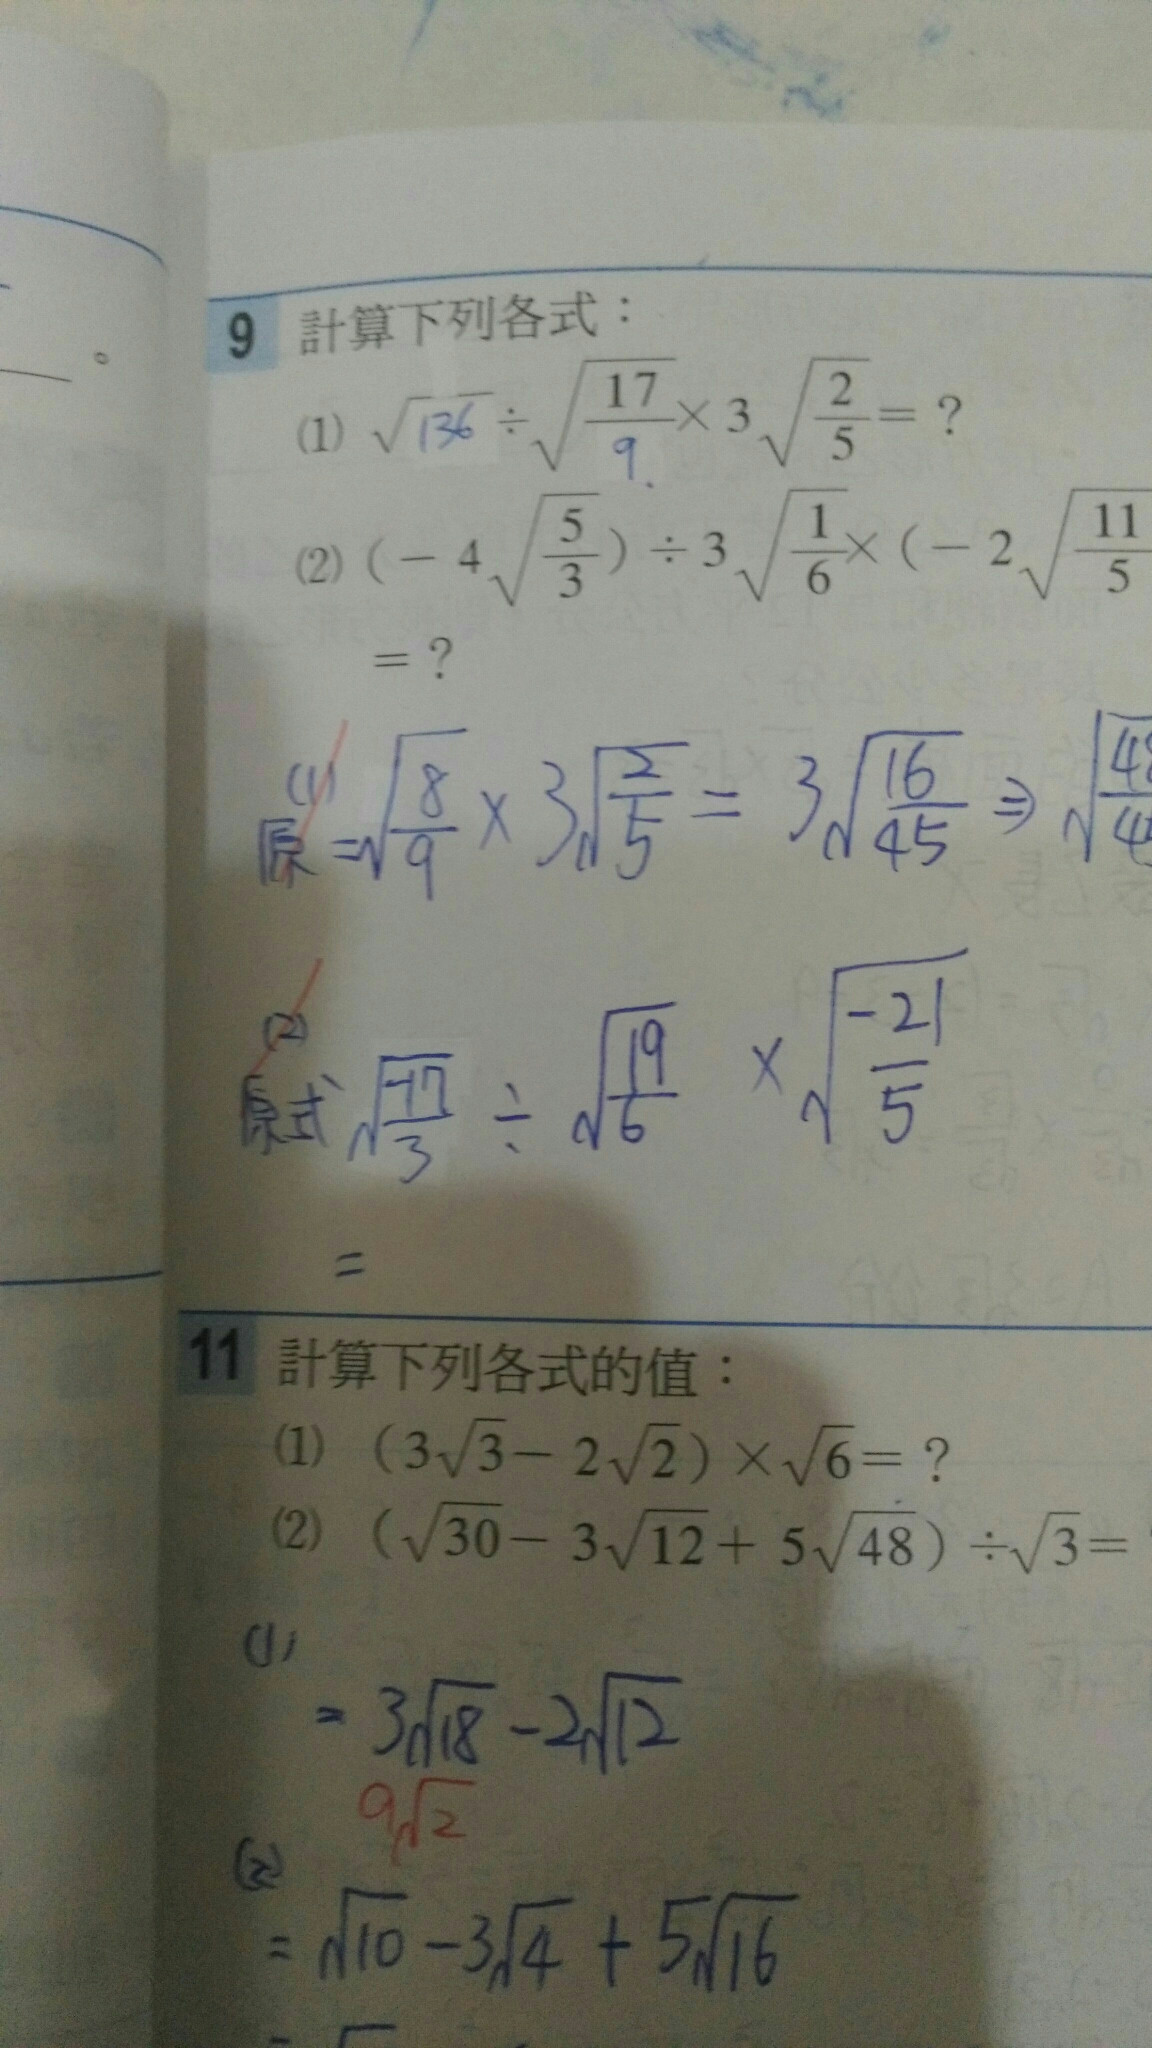 9 計算下列各式：
(1) √136 ÷ √(17/9) × 3√(2/5) = ?
(2) (−4√(5/3)) ÷ 3√(1/6) × (−2√(11/5)
= ?
(1)
原 = √(8/9) × 3√(2/5) = 3√(16/45) ⇒
(2)
原式 √(-17/3) ÷ √(19/6) × √(-21/5)
=
11 計算下列各式的值：
(1) (3√3 − 2√2) × √6 = ?
(2) (√30 − 3√12 + 5√48) ÷ √3 =
(1)
= 3√18 − 2√12
9√2
(2)
= √10 − 3√4 + 5√16
=